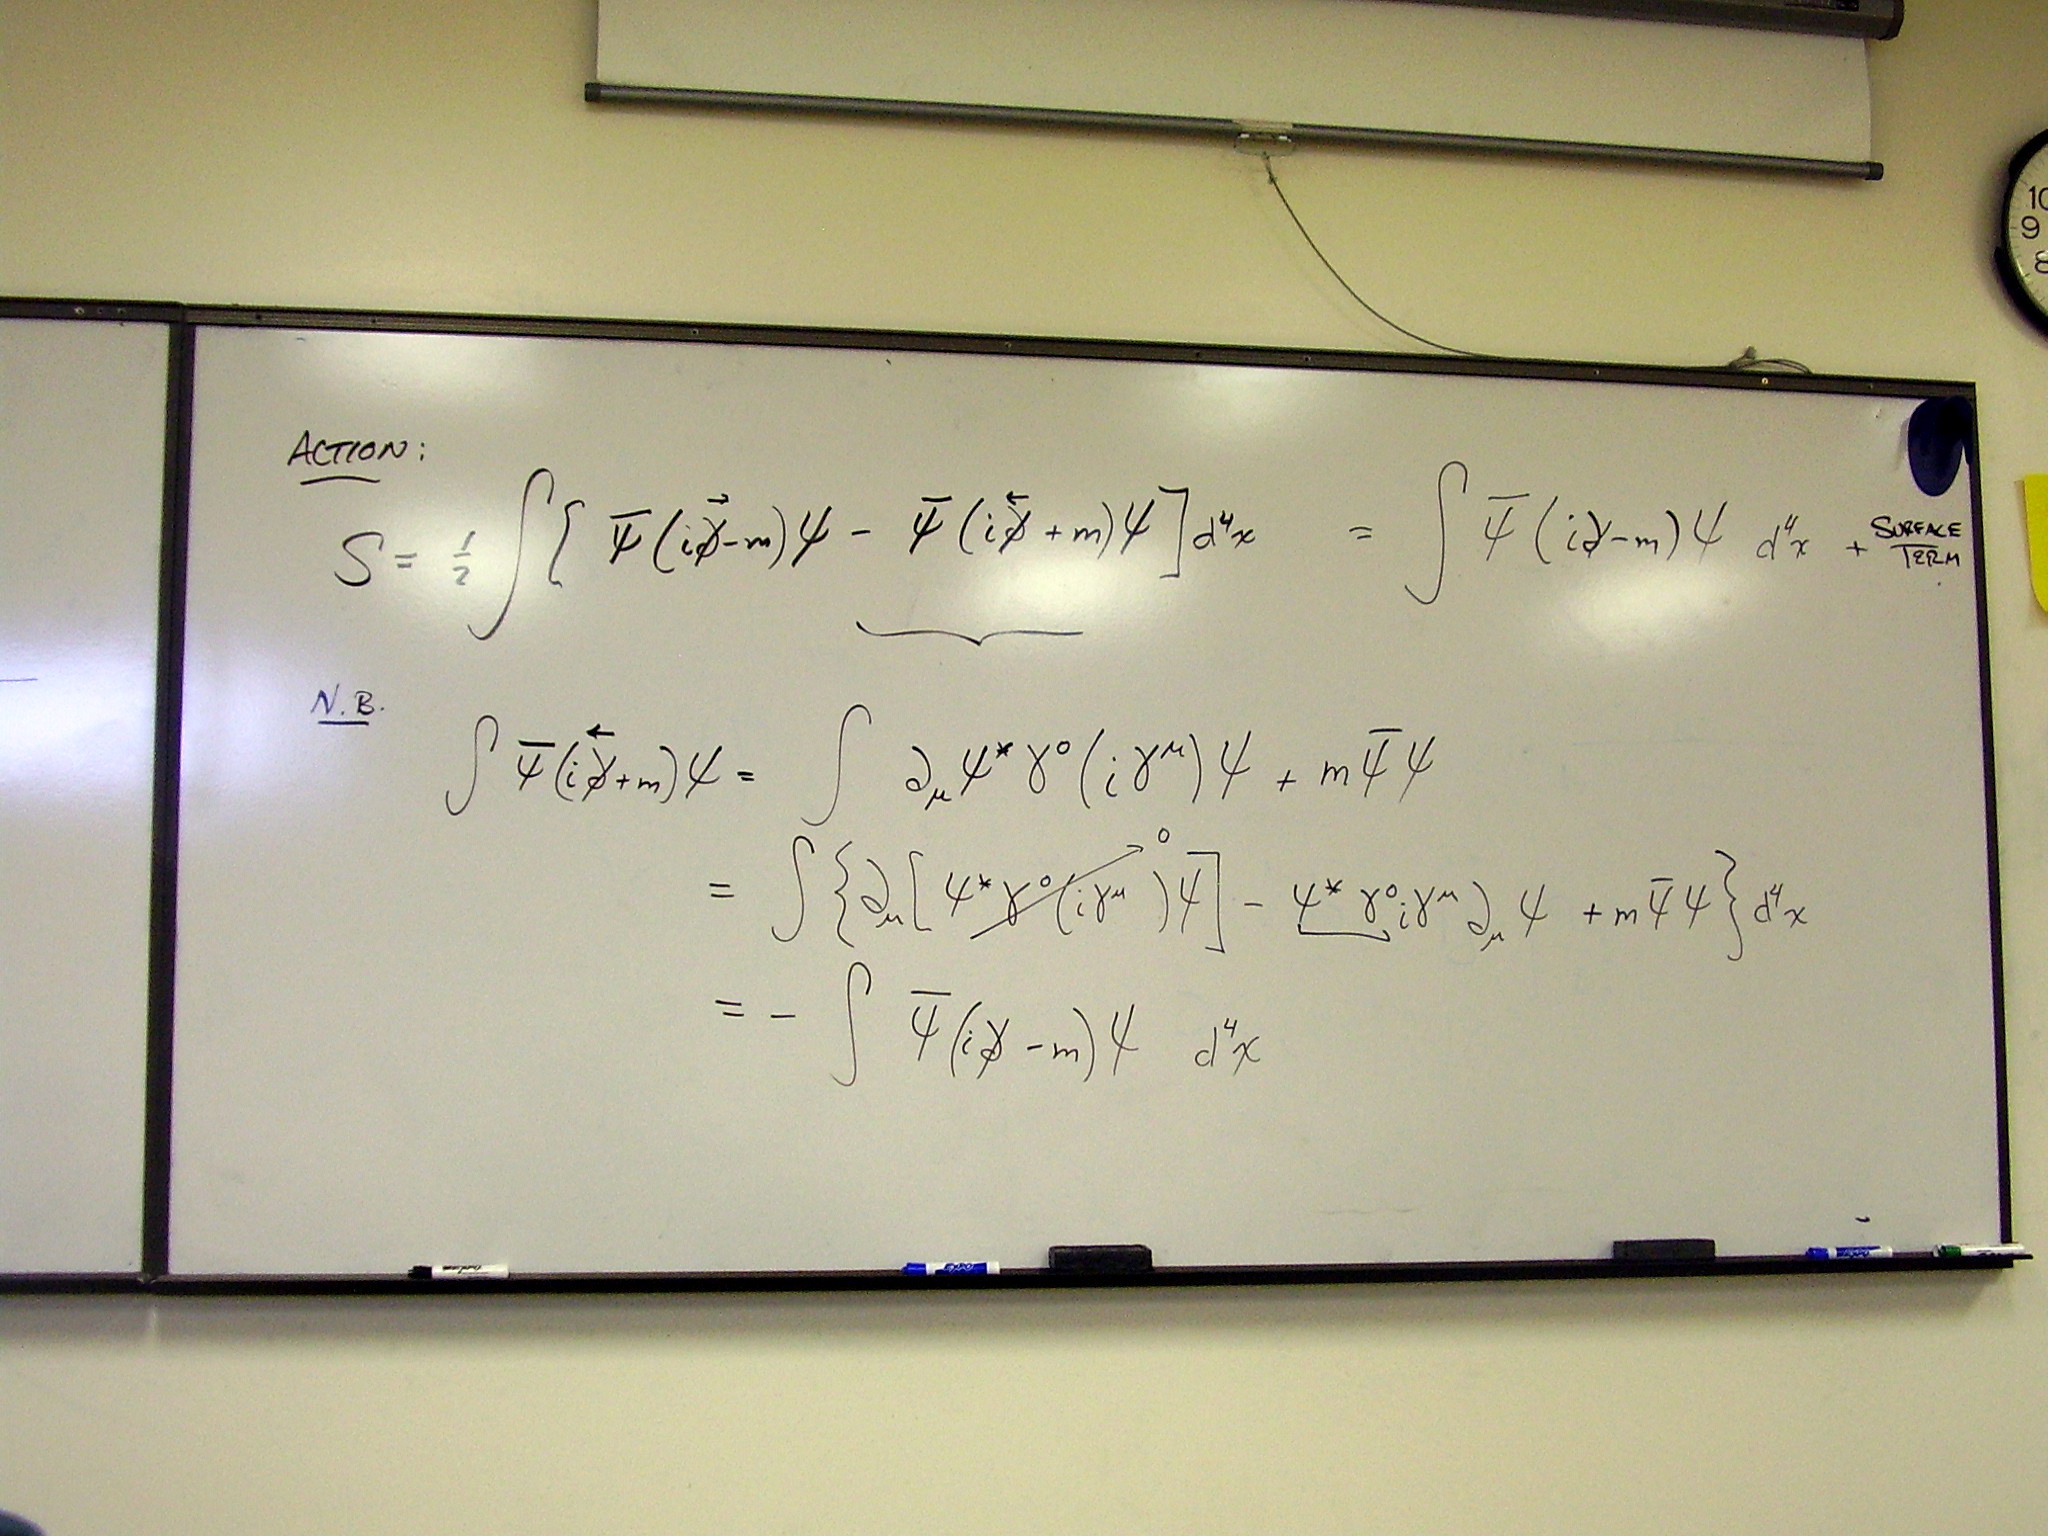 ACTION:
S = 1/2 ∫ { ψ̄ (i∂̸→ - m) ψ - ψ̄ (i∂̸← + m) ψ ] d⁴x = ∫ ψ̄ (i∂̸ - m) ψ d⁴x + SURFACE TERM
N.B.
∫ ψ̄ (i∂̸← + m) ψ = ∫ ∂_μ ψ* γ⁰ (i γ^μ) ψ + m ψ̄ ψ
= ∫ { ∂_μ [ ψ* γ⁰ (i γ^μ ) ψ ] → 0 - ψ* γ⁰ i γ^μ ∂_μ ψ + m ψ̄ ψ } d⁴x
= - ∫ ψ̄ (i∂̸ - m) ψ d⁴x
10
9
8